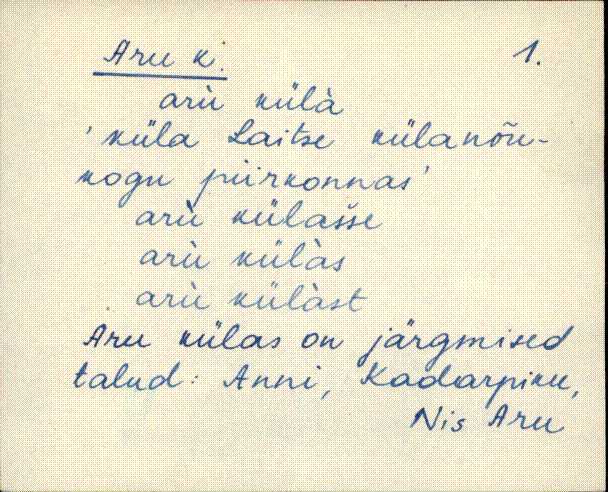 Aru k. 1.
arù külà
'küla Laitse külanõu-
kogu piirkonnas'
arù külašše
arù külàs
arù külàst
Aru külas on järgmised
talud: Anni, Kadarpiku,
Nis Aru